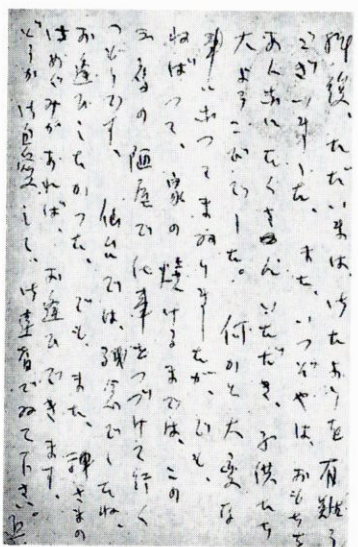 拝復、ただいまは御たよりを有難う
ございました。また、いつぞやは、おもちを
あんなにたくさんいただき、子供たち
大よろこびでした。何かと大変な
事になつてまゐりましたが、でも、
ねばつて、家の焼けるまでは、この
三鷹の陋屋で仕事をつづけて行く
つもりです、仙台では、残念でしたね、
お逢ひしたかつた、でも、また、神さまの
おめぐみがあれば、お逢ひできます、
どうか御自愛して、御達者でゐて下さい。